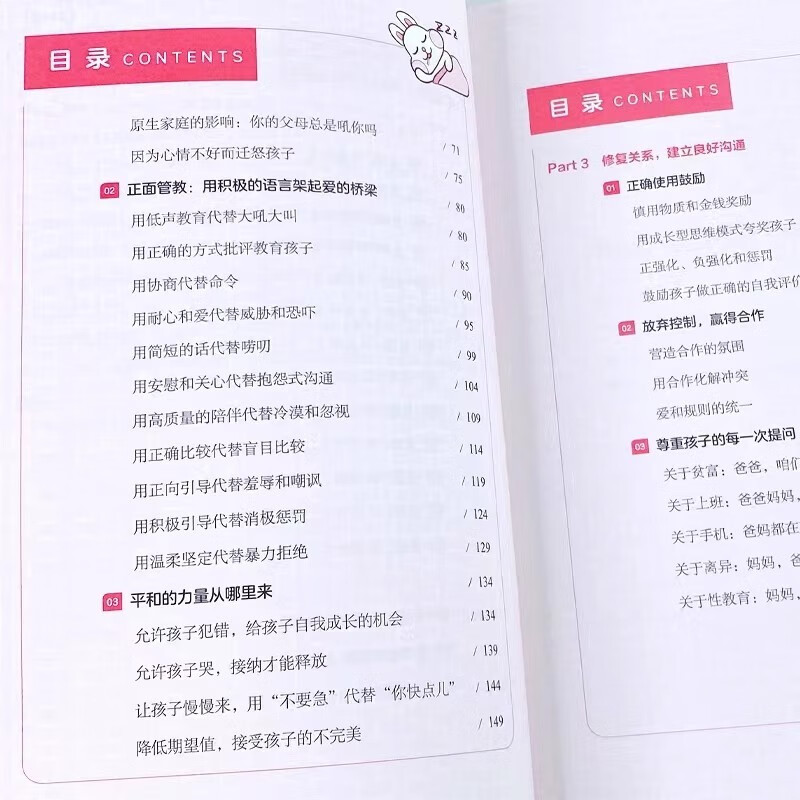 目录 CONTENTS
zzz
原生家庭的影响：你的父母总是吼你吗 / 71
因为心情不好而迁怒孩子 / 75
02 正面管教：用积极的语言架起爱的桥梁 / 80
用低声教育代替大吼大叫 / 80
用正确的方式批评教育孩子 / 85
用协商代替命令 / 90
用耐心和爱代替威胁和恐吓 / 95
用简短的话代替唠叨 / 99
用安慰和关心代替抱怨式沟通 / 104
用高质量的陪伴代替冷漠和忽视 / 109
用正确比较代替盲目比较 / 114
用正向引导代替羞辱和嘲讽 / 119
用积极引导代替消极惩罚 / 124
用温柔坚定代替暴力拒绝 / 129
03 平和的力量从哪里来 / 134
允许孩子犯错，给孩子自我成长的机会 / 134
允许孩子哭，接纳才能释放 / 139
让孩子慢慢来，用“不要急”代替“你快点儿” / 144
降低期望值，接受孩子的不完美 / 149
目录 CONTENTS
Part 3 修复关系，建立良好沟通
01 正确使用鼓励
慎用物质和金钱奖励
用成长型思维模式夸奖孩子
正强化、负强化和惩罚
鼓励孩子做正确的自我评价
02 放弃控制，赢得合作
营造合作的氛围
用合作化解冲突
爱和规则的统一
03 尊重孩子的每一次提问
关于贫富：爸爸，咱们
关于上班：爸爸妈妈，
关于手机：爸妈都在
关于离异：妈妈，爸
关于性教育：妈妈，